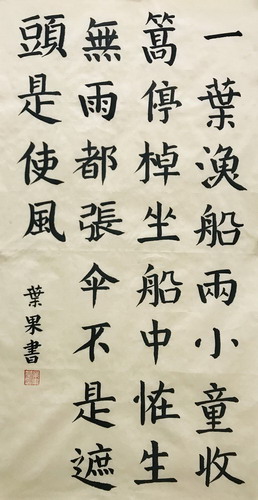 一葉漁船兩小童收
篙停棹坐船中恠生
無雨都張傘不是遮
頭是使風
葉果書